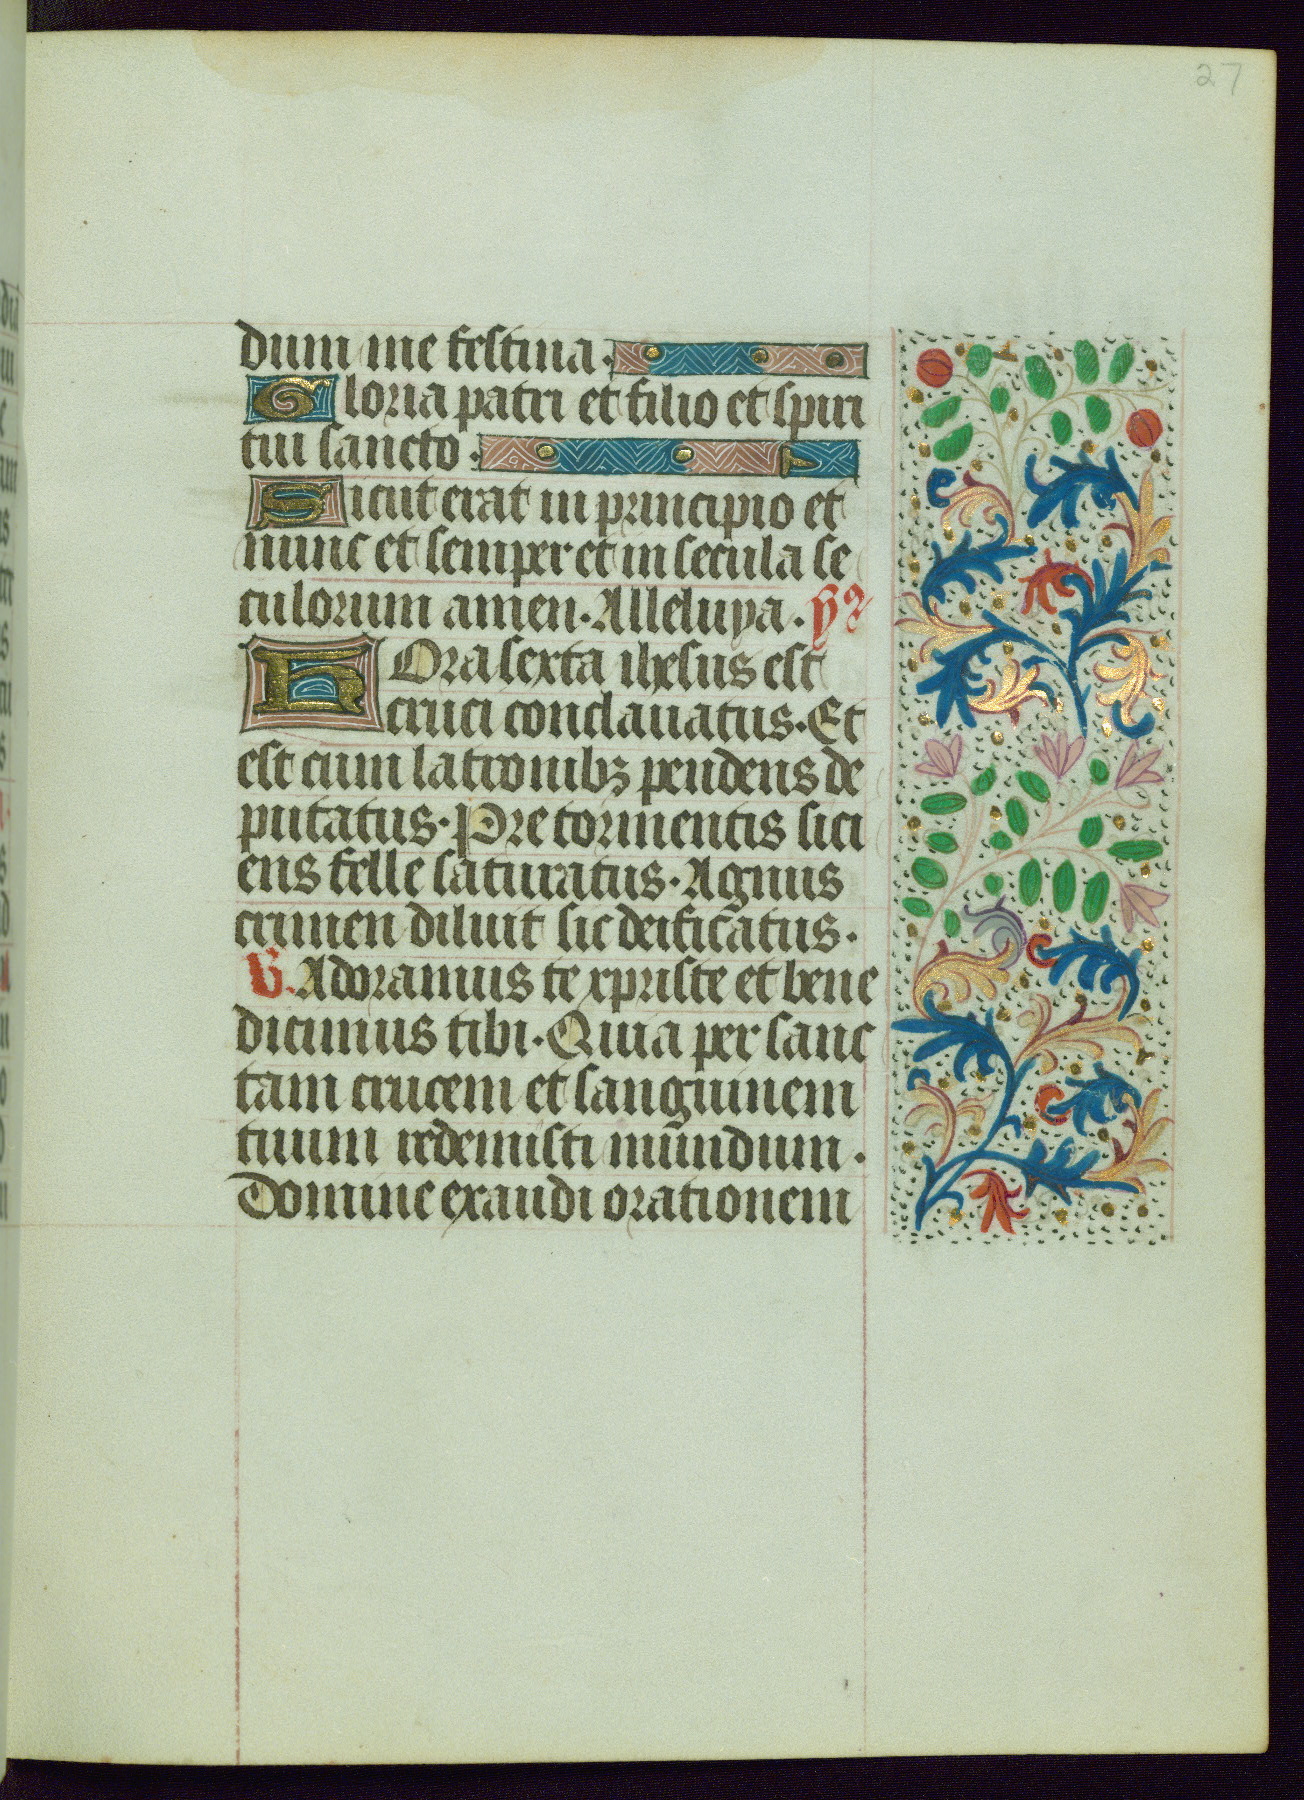 27
dum me festina.
Gloria patri et filio et spiri
tui sancto.
Sicut erat in principio et
nunc et semper et in secula se
culorum amen. Alleluya. ỹꝰ
Hora sexta ihesus est
cruci conclauatus. Et
est cum latronibꝫ pendens de
putatus. Pre tormentis sici
ens felle saturatus. Agnus
crimen diluit sic deificatus.
V. Adoramus te xpriste et bene
dicimus tibi. Quia per sanc
tam crucem et sanguinem
tuum redemisti mundum.
Domine exaudi orationem